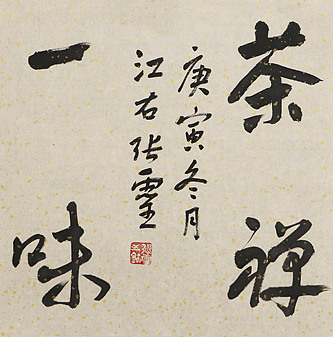 茶禅
庚寅冬月
江右张灵
一味